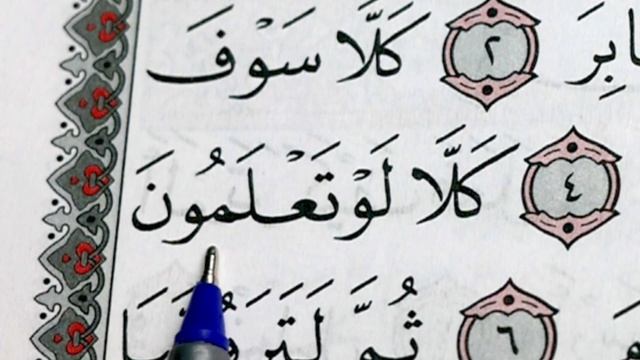 ابِرَ ٢ كَلَّا سَوْفَ
٤ كَلَّا لَوْ تَعْلَمُونَ
٦ ثُمَّ لَتَرَوُنَّهَا